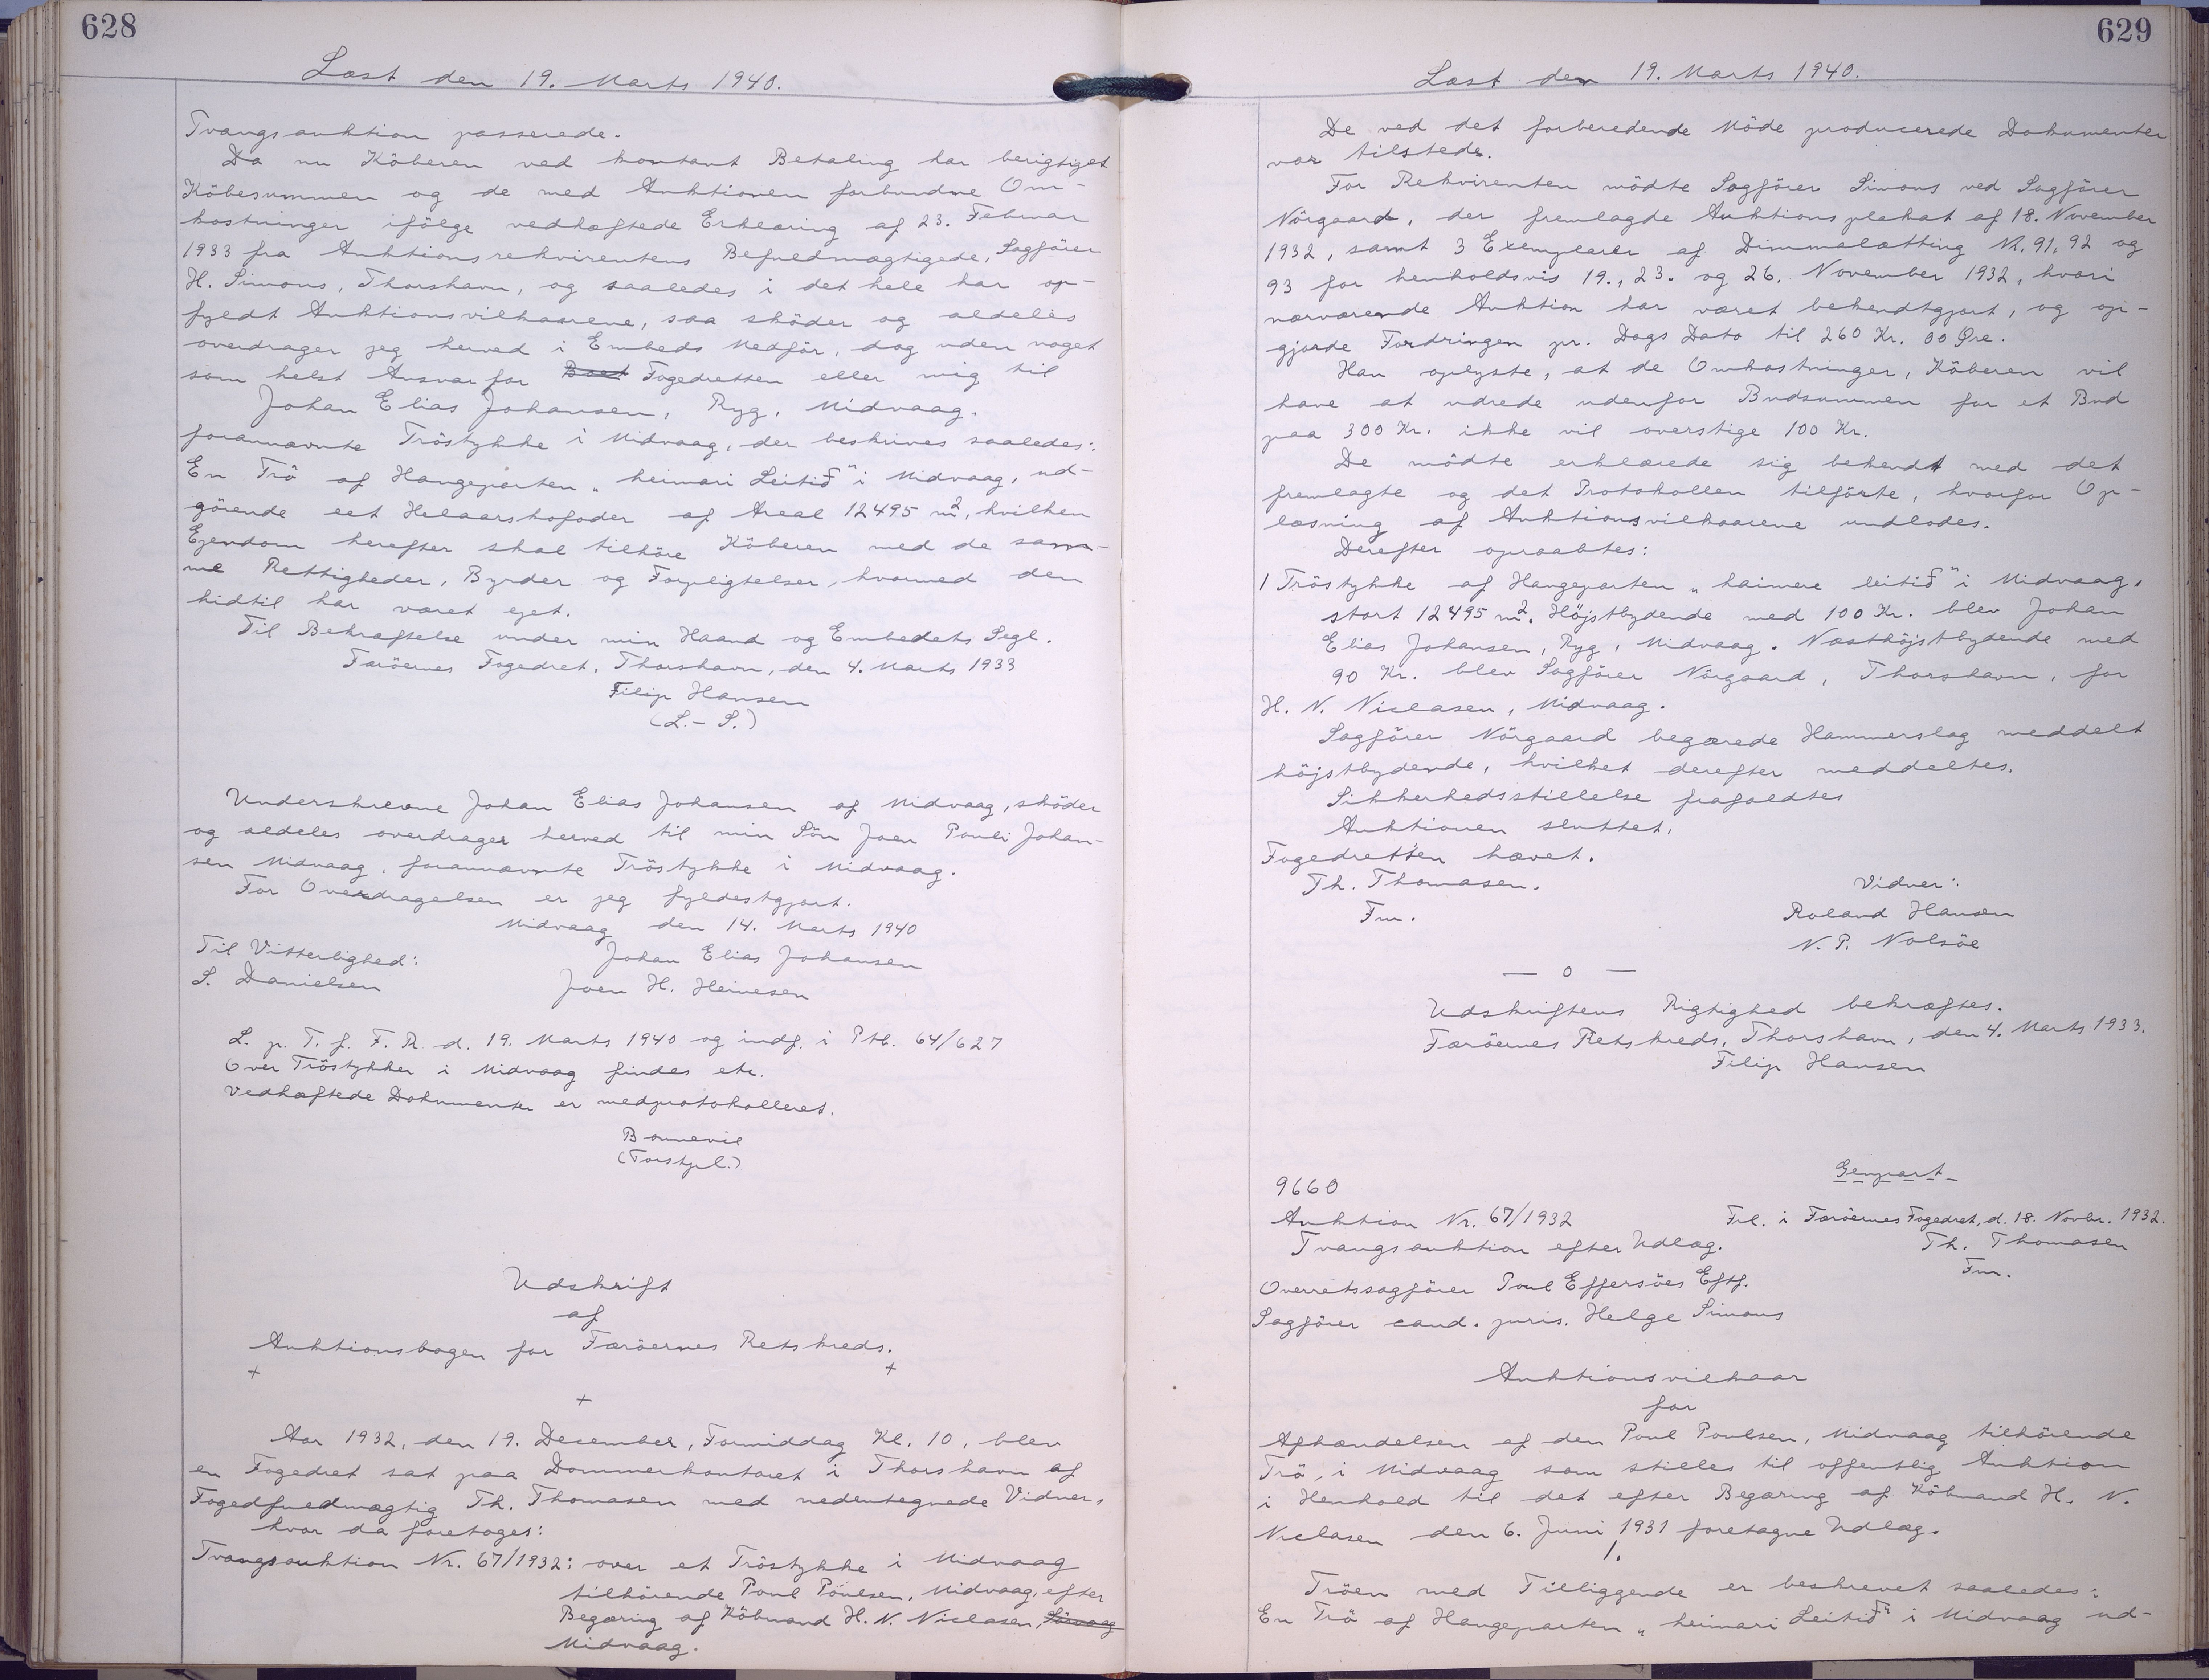 628
Læst den 19. Marts 1940.
Tvangsauktion passerede.
Da nu Köberen ved kontant Betaling har berigtiget
Köbesummen og de med Auktionen forbundne Om-
kostninger ifölge vedhæftede Erklæring af 23. Februar
1933 fra Auktionsrekvirentens Befuldmægtigede, Sagförer
H. Simons, Thorshavn, og saaledes i det hele har op-
fyldt Auktionsvilkaarene, saa sköder og aldeles
overdrager jeg herved i Embeds Medför, dog uden noget
som helst Ansvar for Boet Fogedretten eller mig til
Johan Elias Johansen, Ryg, Midvaag.
forannævnte Tröstykke i Midvaag, der beskrives saaledes:
En Trö af Hangeparten „heimari Leitið" i Midvaag, ud-
görende eet Helaarskofoder af Areal 12495 m², hvilken
Ejendom herefter skal tilhöre Köberen med de sam-
me Rettigheder, Byrder og Forpligtelser, hvormed den
hidtil har været ejet.
Til Bekræftelse under min Haand og Embedets Segl.
Færöernes Fogedret, Thorshavn, den 4. Marts 1933
Filip Hansen
(L.- S.)
Underskrevne Johan Elias Johansen af Midvaag, sköder
og aldeles overdrager herved til min Sön Joen Pouli Johan-
sen Midvaag, forannævnte Tröstykke i Midvaag.
For Overdragelsen er jeg fyldestgjort.
Midvaag den 14. Marts 1940
Til Vitterlighed: Johan Elias Johansen
S. Danielsen Joen H. Heinesen
L. p. T. f. F. R. d. 19. Marts 1940 og indf. i Ptb. 64/627
Over Tröstykker i Midvaag findes etc.
Vedhæftede Dokumenter er medprotokolleret.
Bonnevie
(Torstpl.)
Udskrift
af
Auktionsbogen for Færöernes Retskreds.
+ +
+
Aar 1932, den 19. December, Formiddag Kl. 10, blev
en Fogedret sat paa Dommerkontoret i Thorshavn af
Fogedfuldmægtig Th. Thomasen med nedentegnede Vidner,
hvor da foretoges:
Tvangsauktion Nr. 67/1932: over et Tröstykke i Midvaag
tilhörende Poul Poulsen, Midvaag, efter
Begæring af Köbmand H. N. Niclasen, Sörvaag
Midvaag.
629
Læst den 19. Marts 1940.
De ved det forberedende Möde producerede Dokumenter
var tilstede.
For Rekvirenten mödte Sagförer Simons ved Sagförer
Nörgaard, der fremlagde Auktionsplakat af 18. November
1932, samt 3 Exemplarer af Dimmalætting Nr. 91, 92 og
93 for henholdsvis 19., 23. og 26. November 1932, hvori
nærværende Auktion har været bekendtgjort, og op-
gjorde Fordringen pr. Dags Dato til 260 Kr. 00 Øre.
Han oplyste, at de Omkostninger, Köberen vil
have at udrede udenfor Budsummen for et Bud
paa 300 Kr. ikke vil overstige 100 Kr.
De mödte erklærede sig bekendt med det
fremlagte og det Protokollen tilförte, hvorfor Op-
læsning af Auktionsvilkaarene undlodes.
Derefter opraabtes:
1 Tröstykke af Hangeparten „haimere leitið" i Midvaag,
stort 12495 m². Höjstbydende med 100 Kr. blev Johan
Elias Johansen, Ryg, Midvaag. Næsthöjstbydende med
90 Kr. blev Sagförer Nörgaard, Thorshavn, for
H. N. Niclasen, Midvaag.
Sagförer Nörgaard begærede Hammerslag meddelt
höjstbydende, hvilket derefter meddeltes.
Sikkerhedsstillelse frafaldtes
Auktionen sluttet.
Fogedretten hævet.
Th. Thomasen. Vidner:
Fm. Roland Hansen
N. P. Nolsöe
— 0 —
Udskriftens Rigtighed bekræftes.
Færöernes Retskreds, Thorshavn, den 4. Marts 1933.
Filip Hansen
Genpart
9660
Auktion Nr. 67/1932 Frl. i Færöernes Fogedret, d. 18. Novbr. 1932.
Tvangsauktion efter Udlæg. Th. Thomasen
Fm.
Overretssagförer Poul Effersöes Eftf.
Sagförer cand. juris. Helge Simons
Auktionsvilkaar
for
Afhændelsen af den Poul Poulsen, Midvaag tilhörende
Trö, i Midvaag som stilles til offentlig Auktion
i Henhold til det efter Begæring af Köbmand H. N.
Niclasen den 6. Juni 1931 foretagne Udlæg.
1.
Tröen med Tilliggende er beskrevet saaledes:
En Trö af Hangeparten „heimari Leitið" i Midvaag ud-